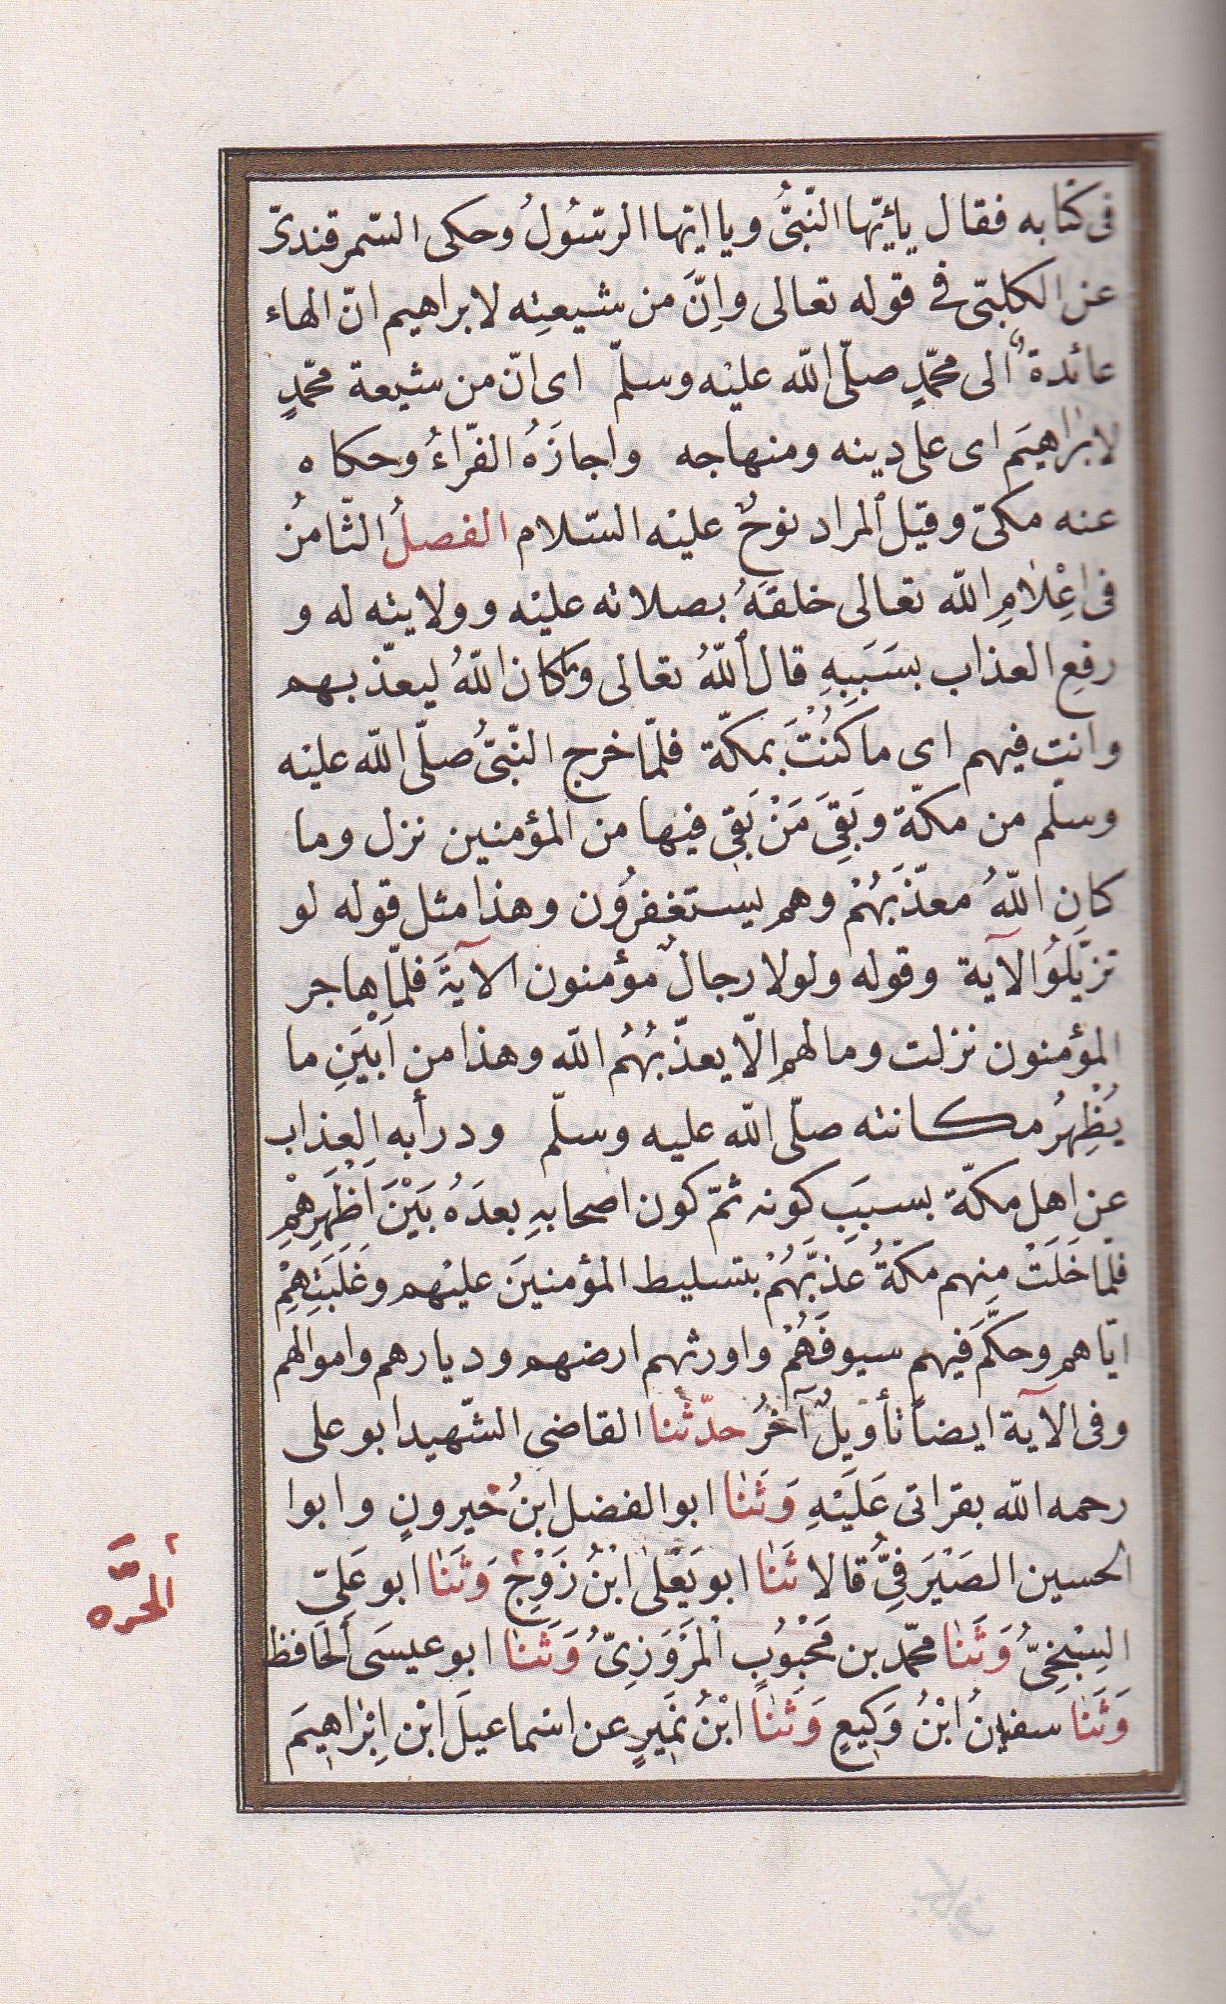 فى كتابه فقال يأيّها النّبىُّ ويا ايّها الرسّوُلُ وحكى السّمرقندىّ
عن الكلبىّ فى قوله تعالى وإنّ من شيعتِه لابراهيم انّ الهاء
عائدة الى محمّدٍ صلّى الله عليْه وسلّم اى انّ من شيعة محمّدٍ
لابراهيمَ اى على دينه ومنهاجه واجازَهُ الفرّاءُ وحكاه
عنه مكىّ وقيل المراد نوحٌ عليْه السّلام الفصلُ الثّامنُ
فى اِعْلامِ الله تعالى خلقَهُ بصلاته عليْه وولايته له و
رفعِ العذاب بسَبَبِهِ قال اللهُ تعالى وما كان اللهُ ليعذّبهم
وانت فيهم اى ما كُنْتَ بمكّة فلمّا خرج النّبىُّ صلّى الله عليْه
وسلّم من مكّة وبَقِىَ مَنْ بَقِى فيْها من المؤمنين نزل وما
كان اللهُ معذّبَهُمْ وهم يستغفرُون وهذا مثل قوله لو
تزيّلوُا الآية وقوله ولولا رجالٌ مؤمنون الآيَة فلمّا هاجر
المؤمنون نزلت ومالهم الّا يعذّبهُمُ الله وهذا من اَبْيَنِ ما
يُظْهِرُ مكانته صلّى الله عليه وسلّم ودرأ به العذاب
عن اهل مكّة بسببَِ كونه ثمّ كون اصحابهِ بعدَهُ بَيْنَ اَظْهَرِهِمْ
فلما خَلَتْ منهم مكّةُ عذّبَهُمْ بتسليط المؤمنينَ عليْهم وغَلَبَتِهِمْ
ايّاهم وحكَّمَ فيهم سيوفَهُمْ واورثهم ارضهم وديارهم واموالهم
وفى الآية ايضاً تأويلٌ آخرُ حدّثنا القاضى الشّهيد ابو على
رحمه الله بقراتى عَلَيْهِ وَثَنا ابو الفضل ابنُ خيرونٍ وابوا
الحسين الصَيْرَفِىُّ قالا ثَنا ابو يَعْلى ابْنُ زَوْجُ وَثَنا ابو عَلِىّ
السِبْخِىُّ وَثَنا محمّد بن مَحْبُوبٍ المَرْوَزِىُّ وَثَنا ابو عيسَى الحَافظ
وَثَنا سفيانُ ابْنُ وَكِيعٍ وَثَنا ابْنُ نُمَيرٍ عن اسماعيلَ ابْن اِبْراهِيمَ
الحرّه